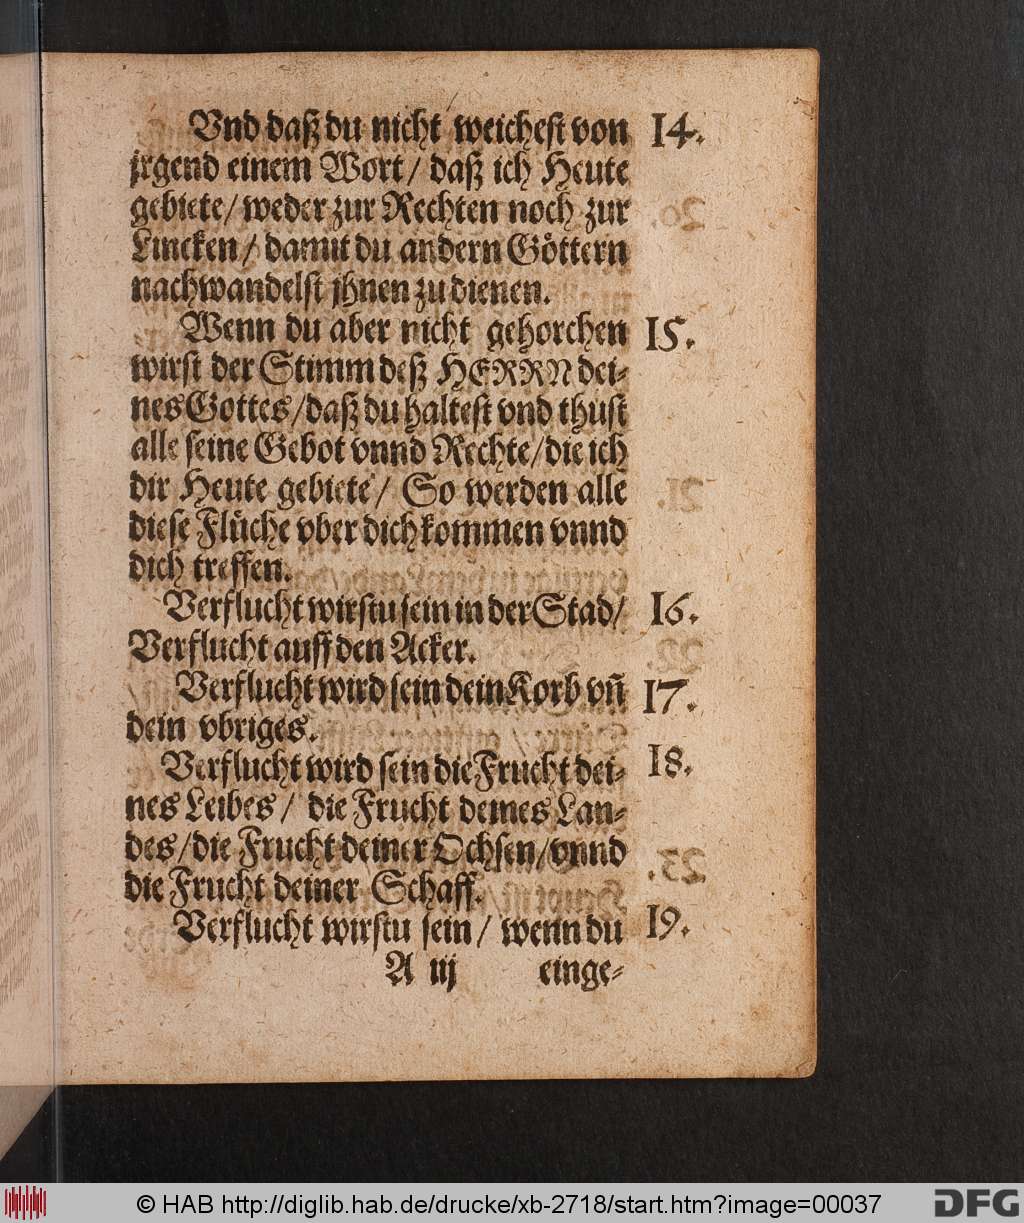 Vnd daß du nicht weichest von 14.
jrgend einem Wort / daß ich Heute
gebiete / weder zur Rechten noch zur
Lincken / damit du andern Göttern
nachwandelst jhnen zu dienen.
Wenn du aber nicht gehorchen 15.
wirst der Stimm deß HERRN dei-
nes Gottes / daß du haltest vnd thust
alle seine Gebot vnnd Rechte / die ich
dir Heute gebiete / So werden alle
diese Flüche vber dich kommen vnnd
dich treffen.
Verflucht wirstu sein in der Stad / 16.
Verflucht auff den Acker.
Verflucht wird sein dein Korb vñ 17.
dein vbriges.
Verflucht wird sein die Frucht dei- 18.
nes Leibes / die Frucht deines Lan-
des / die Frucht deiner Ochsen / vnnd
die Frucht deiner Schaff.
Verflucht wirstu sein / wenn du 19.
A iij einge-
© HAB http://diglib.hab.de/drucke/xb-2718/start.htm?image=00037
DFG